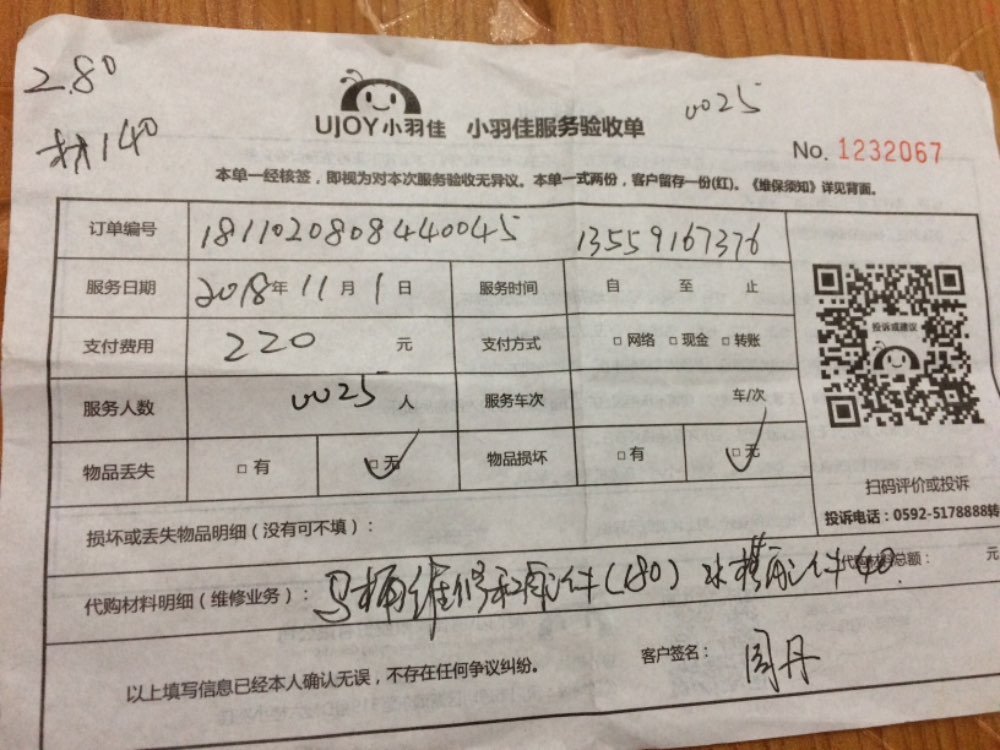 2.80
材140
0025
UJOY小羽佳 小羽佳服务验收单
No. 1232067
本单一经核签，即视为对本次服务验收无异议。本单一式两份，客户留存一份(红)。《维保须知》详见背面。
订单编号 1811020808440045 13559167376
服务日期 2018年11月1日 服务时间 自 至 止
支付费用 220 元 支付方式 □网络 □现金 □转账
服务人数 0025 人 服务车次 车/次
物品丢失 □有 □无 物品损坏 □有 □无
投诉或建议
扫码评价或投诉
投诉电话：0592-5178888转
损坏或丢失物品明细（没有可不填）：
代购材料明细（维修业务）：马桶维修和配件(180) 水 配件40 代购材料总额： 元
以上填写信息已经本人确认无误，不存在任何争议纠纷。 客户签名： 丹